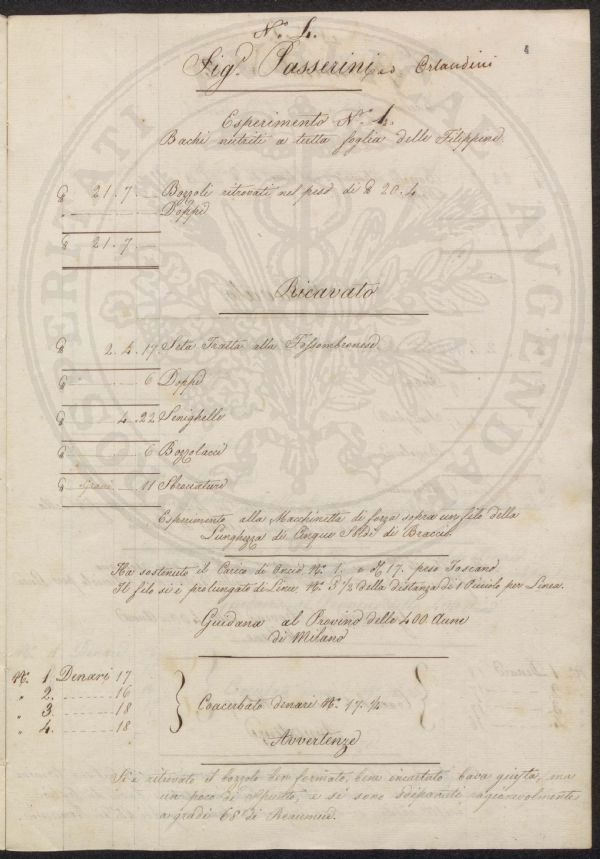 N.º 4.
4
Sig.ri Passerini ed Orlandini
Esperimento N.º 4.
Bachi nutriti a tutta foglia delle Filippine.
21. 7. Bozzoli ritrovati nel peso di 20. 4
Doppi
21. 7.
Ricavato
2. 4. 17. Seta Tratta alla Fossombronese
6 Doppi
4. 22 Senighelle
6 Bozzolacci
Grani 11 Sbrociature
Esperimento alla Macchinetta di forza sopra un filo della
Lunghezza di Cinque S.di di Braccio.
Ha sostenuto il Carico di Oncie N.º 1. e 17. peso Toscano
Il filo si è prolungato di Linee N.º 3 1/2 della distanza di 1 Picciolo per Linea.
Guidana al Provino delle 400 Aune
di Milano
N.º 1 Denari 17
" 2. 16
" 3. 18
" 4. 18
Coacerbato denari N.º 17. 1/4
Avvertenze
Si è ritrovato il bozzolo ben formato, bene incartato bava giusta, ma
un poco di spunto, e si sono dipanati ragionevolmente
a gradi 68 di Reaumur.
COSPERITATI PUBLICAE AVGENDAE